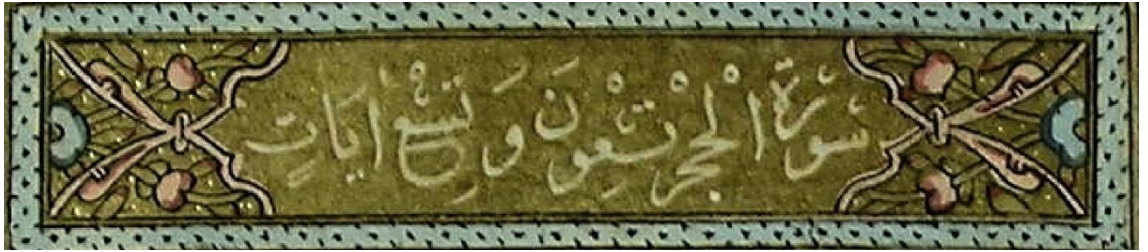 سُورَةُ الْحِجْرِ تِسْعُونَ وَ تِسْعُ اٰيَاتٍ